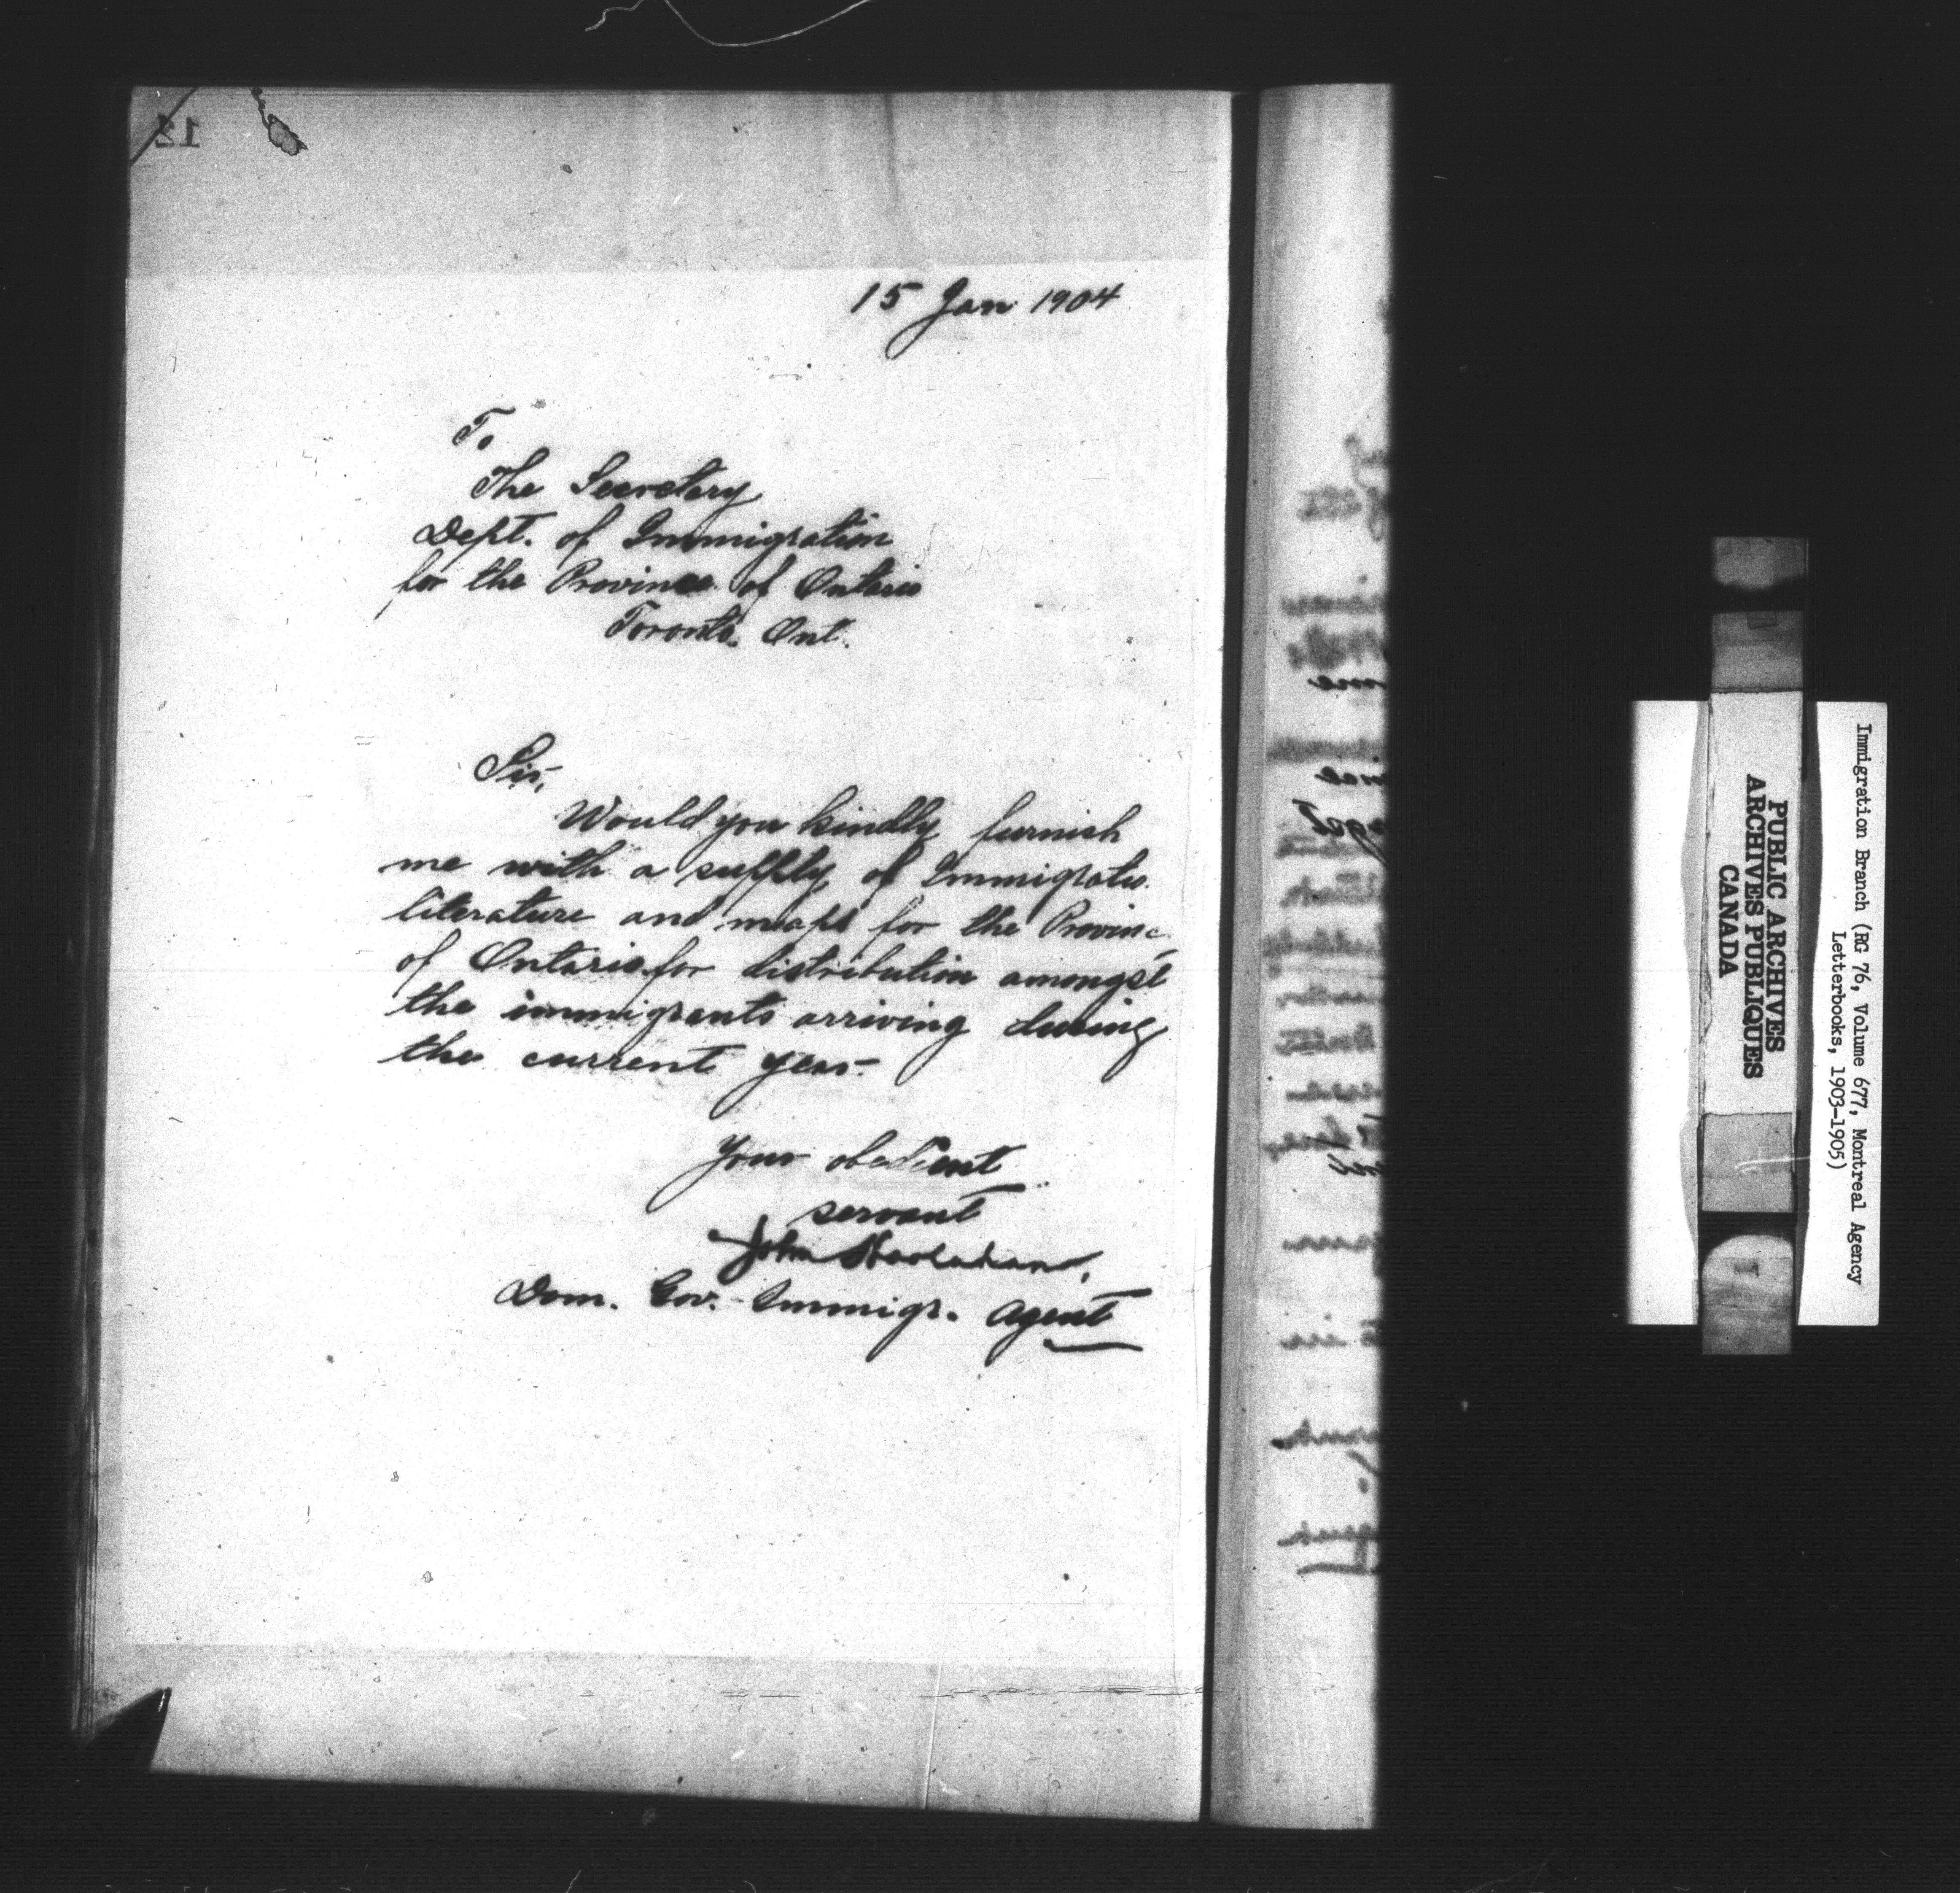 12
15 Jan 1904
To
The Secretary
Dept. of Immigration
for the Province of Ontario
Toronto. Ont.
Sir,
Would you kindly furnish
me with a supply of Immigratio
literature and maps for the Provinc
of Ontario for distribution amongst
the immigrants arriving during
the current year.
Your obedient
servant
John
Dom. Gov. Immigr. Agent
PUBLIC ARCHIVES
ARCHIVES PUBLIQUES
CANADA
Immigration Branch (RG 76, Volume 677, Montreal Agency
Letterbooks, 1903-1905)